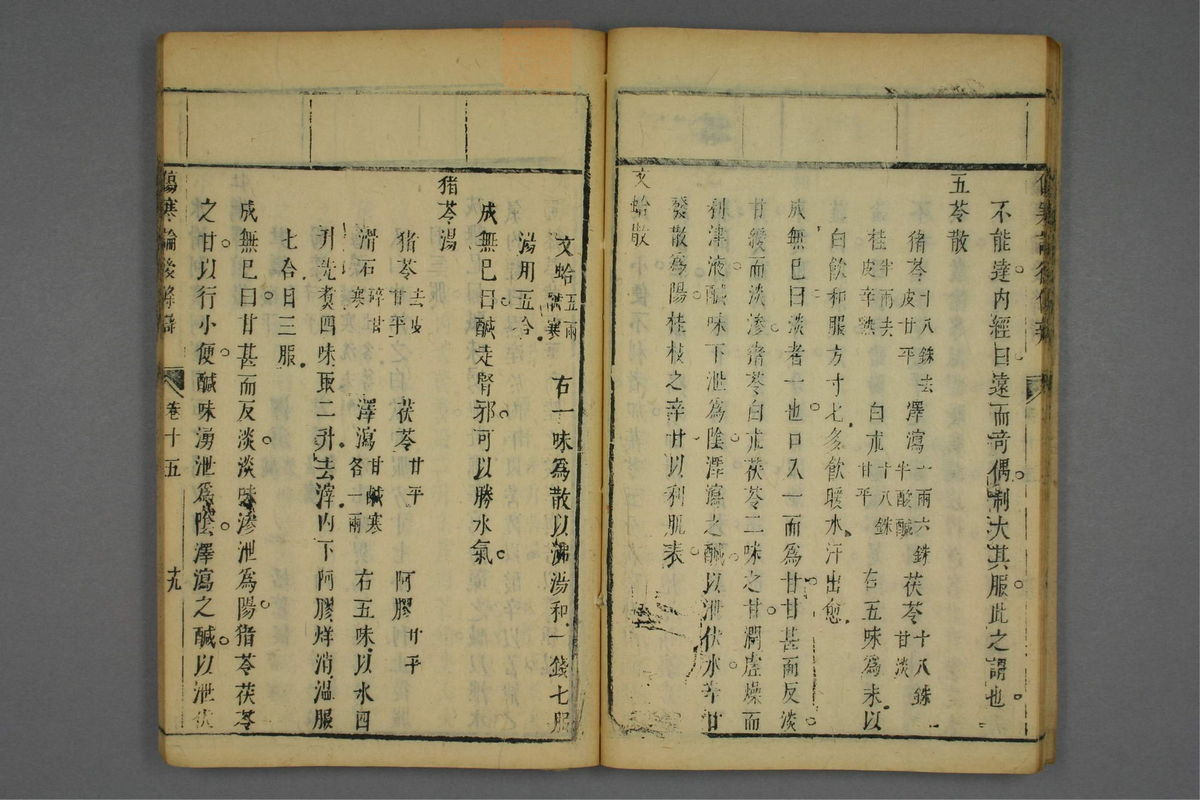 不能達內經曰遠而竒偶制大其服此之謂也
五苓散
猪苓十八銖去皮甘平 澤瀉一兩六銖半酸鹹 茯苓十八銖甘淡
桂半兩去皮辛熱 白朮十八銖甘平 右五味爲末以
白飲和服方寸匕多飲暖水汗出愈
成無巳曰淡者一也口入一而爲甘甘甚而反淡
甘緩而淡滲猪苓白朮茯苓三味之甘潤虛燥而
利津液鹹味下泄爲陰澤瀉之鹹以泄伏水辛甘
發散爲陽桂枝之辛甘以利肌表
文蛤散
文蛤五兩鹹寒 右一味爲散以沸湯和一錢七服
湯用五合
成無巳曰鹹走腎邪可以勝水氣
猪苓湯
猪苓去皮甘平 茯苓甘平 阿膠甘平
滑石碎甘寒 澤瀉甘鹹寒各一兩 右五味以水四
升先煑四味取二升去滓內下阿膠烊消溫服
七合日三服
成無巳曰甘甚而反淡淡味滲泄爲陽猪苓茯苓
之甘以行小便鹹味湧泄爲陰澤瀉之鹹以泄伏
傷寒論後條辯
卷十五
十九